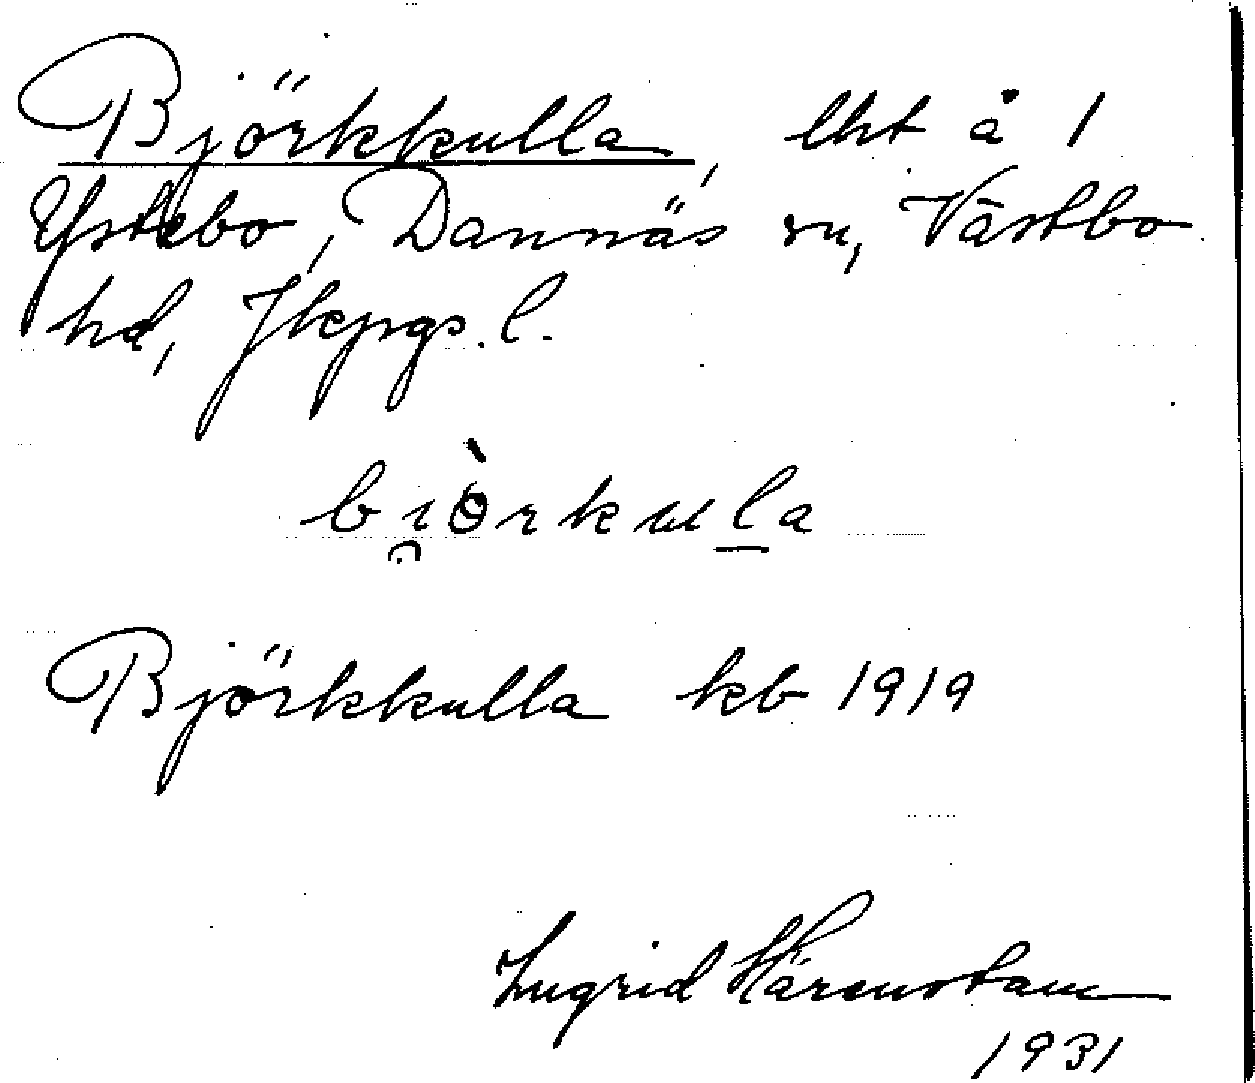 Björkkulla, lht å 1
Ystebo, Dannäs sn, Västbo
hd, Jkpgs. l.
bi̯òrkul̲a
Björkkulla kb 1919
Ingrid Härenstam
1931